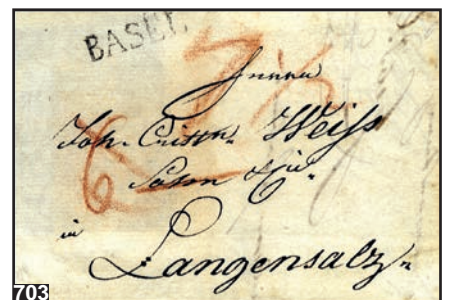 BASEL
7½
Herren
Joh. Cristn. Weiss
Sohn & Cie.
6
in
Langensalz
703